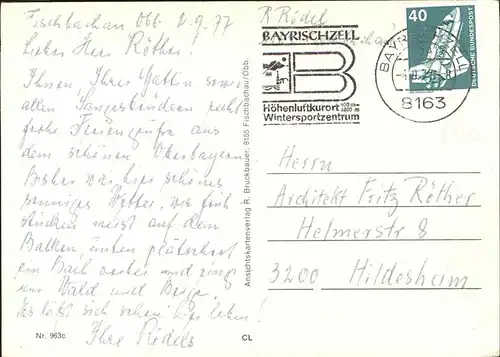 Fischbachau Obb. 2.9.77
Lieber Herr Röther!
Ihnen, Ihrer Gattin sowie
allen Sangesbrüdern recht
frohe Feriengrüße aus
dem schönen Oberbayern
Bisher was hier schönes
sonniges Wetter, wir früh
stücken meist auf dem
Balkon, unten plätschert
ein Bach vorbei und rings
um Wald und Berge.
Es läßt sich schon hier leben!
Ihre Rödels
Nr. 963c
CL
Ansichtskartenverlag R. Bruckbauer, 8165 Fischbachau/Obb.
R Rödel
BAYRISCHZELL
B
Höhenluftkurort
Wintersportzentrum
8163
40
DEUTSCHE BUNDESPOST
Herrn
Architekt Fritz Röther
Helmerstr 8
3200 Hildesheim